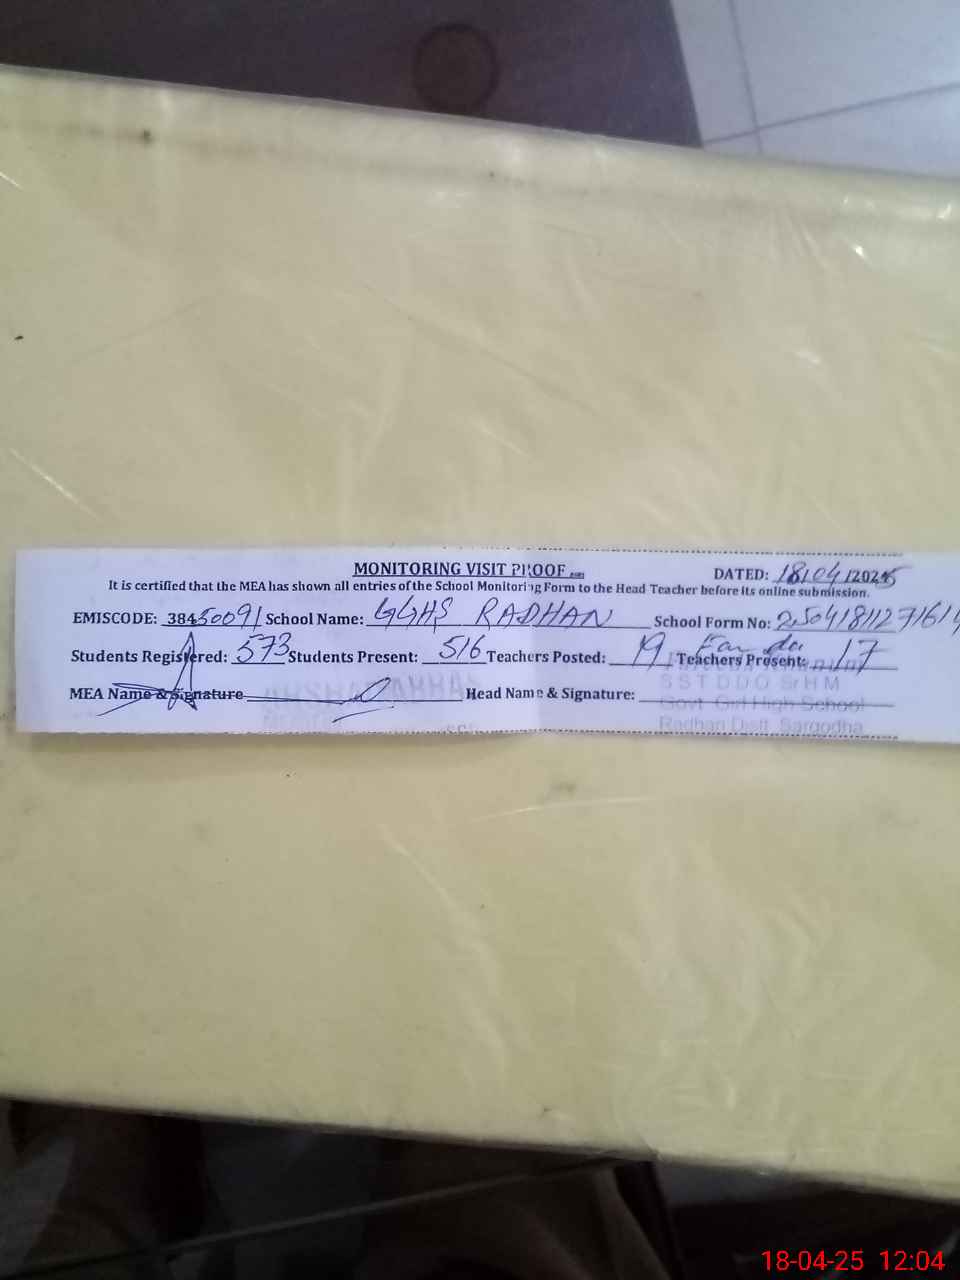 MONITORING VISIT PROOF
DATED: 18/04/2025
It is certified that the MEA has shown all entries of the School Monitoring Form to the Head Teacher before its online submission.
EMISCODE: 38450091 School Name: GGHS RADHAN School Form No: 25041811271614
Students Registered: 573 Students Present: 516 Teachers Posted: 19 Teachers Present: 17
MEA Name & Signature Head Name & Signature:
SST DDO Sr H M
Govt Girl High School
Radhan Distt. Sargodha
18-04-25 12:04